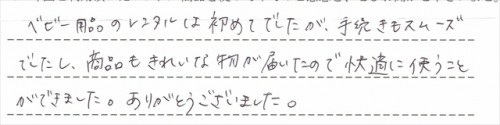 ベビー用品のレンタルは初めてでしたが、手続きもスムーズ
でしたし、商品もきれいな物が届いたので快適に使うこと
ができました。ありがとうございました。